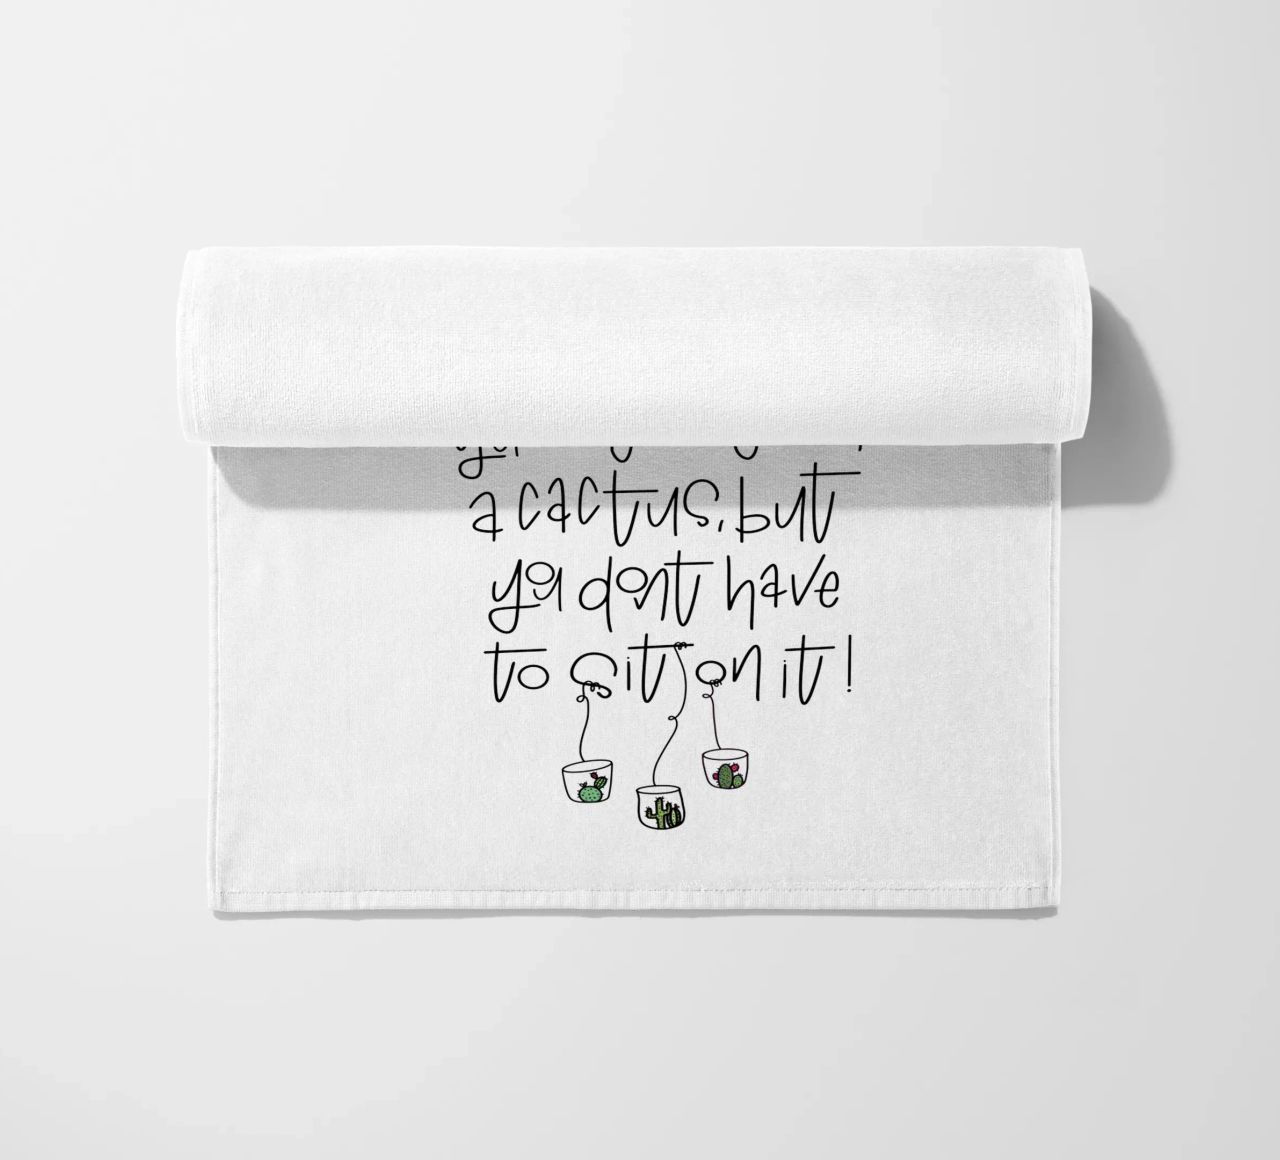 a cactus, but
you dont have
to sit on it!